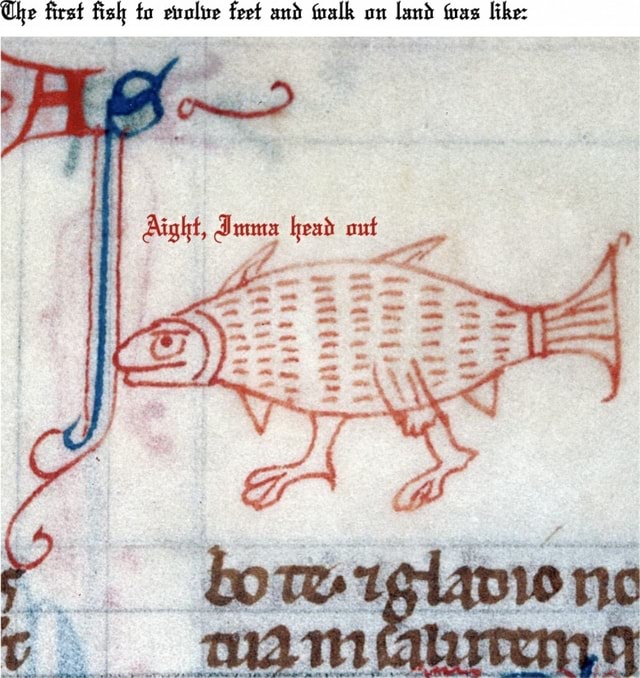 The first fish to evolve feet and walk on land was like:
AS
Aight, Imma head out
bo te. ⁊ gladio no
tua in salutem q